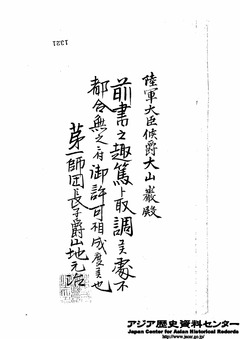 1321
陸軍大臣侯爵大山巖殿
前書之趣篤ト取調候處不
都合無之ニ付御許可相成度候也
第一師団長子爵山地元治
アジア歴史資料センター
Japan Center for Asian Historical Records
http://www.jacar.go.jp/